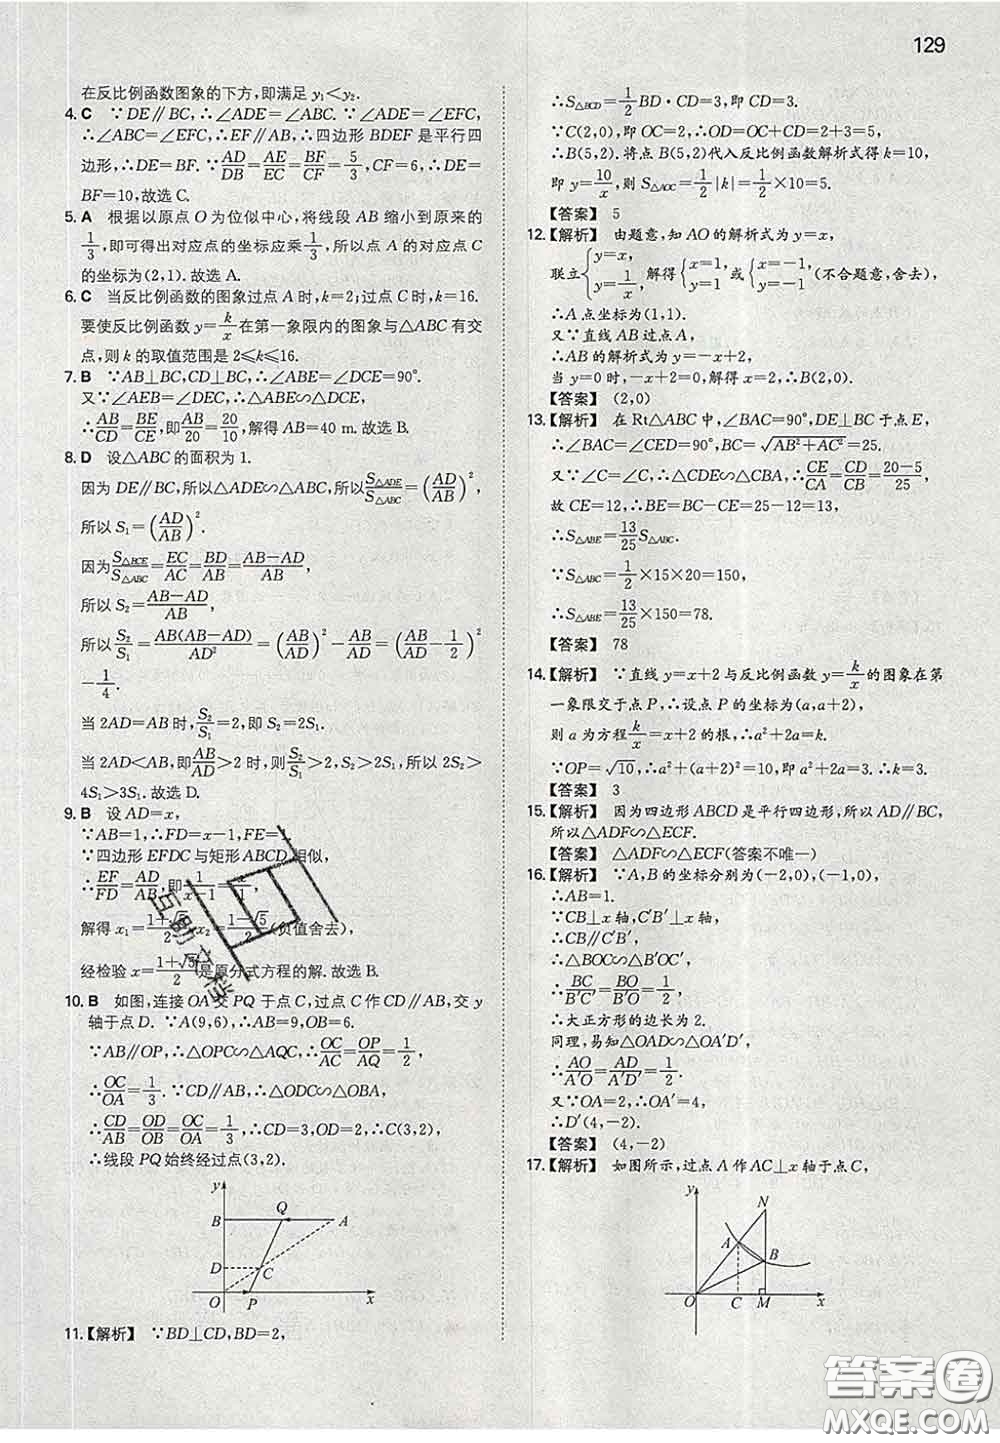 129
在反比例函数图象的下方,即满足 y₁<y₂.
4. C ∵DE∥BC,∴∠ADE=∠ABC. ∵∠ADE=∠EFC,
∴∠ABC=∠EFC,∴EF∥AB,∴四边形 BDEF 是平行四
边形,∴DE=BF. ∵AD/DB=AE/EC=BF/CF=5/3,CF=6,∴DE=
BF=10,故选 C.
5. A 根据以原点 O 为位似中心,将线段 AB 缩小到原来的
1/3,即可得出对应点的坐标应乘1/3,所以点 A 的对应点 C
的坐标为(2,1).故选 A.
6. C 当反比例函数的图象过点 A 时,k=2;过点 C 时,k=16.
要使反比例函数 y=k/x在第一象限内的图象与△ABC 有交
点,则 k 的取值范围是 2≤k≤16.
7. B ∵AB⊥BC,CD⊥BC,∴∠ABE=∠DCE=90°.
又∵∠AEB=∠DEC,∴△ABE∽△DCE,
∴AB/CD=BE/CE,即AB/20=20/10,解得 AB=40 m.故选 B.
8. D 设△ABC 的面积为 1.
因为 DE∥BC,所以△ADE∽△ABC,所以S△ADE/S△ABC=(AD/AB)²,
所以 S₁=(AD/AB)².
因为S△BCE/S△ABC=EC/AC=BD/AB=(AB−AD)/AB,
所以 S₂=(AB−AD)/AB,
所以 S₂/S₁=AB(AB−AD)/AD²=(AB/AD)²−AB/AD=(AB/AD−1/2)²
−1/4.
当 2AD=AB 时,S₂/S₁=2,即 S₂=2S₁.
当 2AD<AB,即AB/AD>2 时,则S₂/S₁>2,S₂>2S₁,所以 2S₂>
4S₁>3S₁.故选 D.
9. B 设 AD=x,
∵AB=1,∴FD=x−1,FE=1.
∵四边形 EFDC 与矩形 ABCD 相似,
∴EF/FD=AD/AB,即1/(x−1)=x/1,
解得 x₁=(1+√5)/2,x₂=(1−√5)/2(负值舍去),
经检验 x=(1+√5)/2是原分式方程的解.故选 B.
10. B 如图,连接 OA 交 PQ 于点 C,过点 C 作 CD∥AB,交 y
轴于点 D. ∵A(9,6),∴AB=9,OB=6.
∵AB∥OP,∴△OPC∽△AQC,∴OC/AC=OP/AQ=1/2,
∴OC/OA=1/3. ∵CD∥AB,∴△ODC∽△OBA,
∴CD/AB=OD/OB=OC/OA=1/3,∴CD=3,OD=2,∴C(3,2).
∴线段 PQ 始终经过点(3,2).
y
Q
B
A
D
C
O
P
x
11.【解析】 ∵BD⊥CD,BD=2,
∴S△BCD=1/2BD·CD=3,即 CD=3.
∵C(2,0),即 OC=2,∴OD=OC+CD=2+3=5,
∴B(5,2).将点 B(5,2)代入反比例函数解析式得 k=10,
即 y=10/x,则 S△AOC=1/2|k|=1/2×10=5.
【答案】 5
12.【解析】 由题意,知 AO 的解析式为 y=x,
联立{y=x, y=1/x, 解得{x=1 y=1 或{x=−1, y=−1 (不合题意,舍去),
∴A 点坐标为(1,1).
又∵直线 AB 过点 A,
∴AB 的解析式为 y=−x+2,
当 y=0 时,−x+2=0,解得 x=2,∴B(2,0).
【答案】 (2,0)
13.【解析】 在 Rt△ABC 中,∠BAC=90°,DE⊥BC 于点 E,
∴∠BAC=∠CED=90°,BC=√(AB²+AC²)=25.
又∵∠C=∠C,∴△CDE∽△CBA,∴CE/CA=CD/CB=(20−5)/25,
故 CE=12,∴BE=BC−CE=25−12=13,
∴S△ABE=13/25S△ABC.
∵S△ABC=1/2×15×20=150,
∴S△ABE=13/25×150=78.
【答案】 78
14.【解析】 ∵直线 y=x+2 与反比例函数 y=k/x的图象在第
一象限交于点 P,∴设点 P 的坐标为(a,a+2),
则 a 为方程k/x=x+2 的根,∴a²+2a=k.
∵OP=√10,∴a²+(a+2)²=10,即 a²+2a=3.∴k=3.
【答案】 3
15.【解析】 因为四边形 ABCD 是平行四边形,所以 AD∥BC,
所以△ADF∽△ECF.
【答案】 △ADF∽△ECF(答案不唯一)
16.【解析】 ∵A,B 的坐标分别为(−2,0),(−1,0),
∴AB=1.
∵CB⊥x 轴,C′B′⊥x 轴,
∴CB∥C′B′.
∴△BOC∽△B′OC′.
∴BC/B′C′=BO/B′O=1/2.
∴大正方形的边长为 2.
同理,易知△OAD∽△OA′D′,
∴AO/A′O=AD/A′D′=1/2.
又∵OA=2,∴OA′=4,
∴D′(4,−2).
【答案】 (4,−2)
17.【解析】 如图所示,过点 A 作 AC⊥x 轴于点 C,
y
N
A
B
O
C
M
x
互助文档
答案圈
MXQE.COM